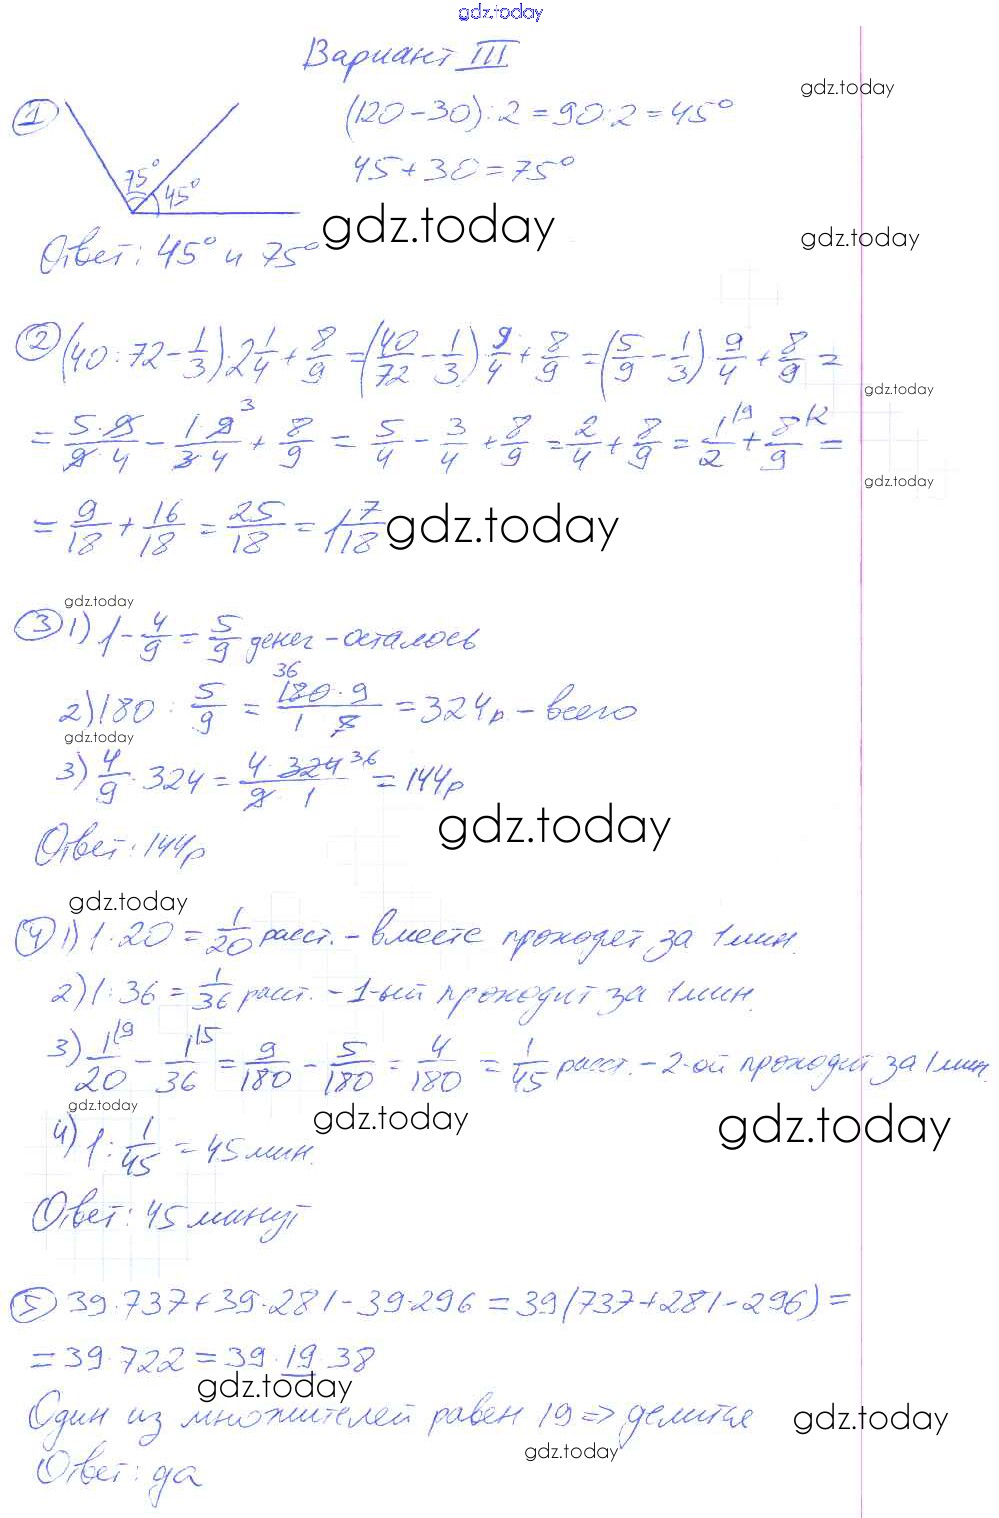 gdz.today
Вариант III
gdz.today
① (120-30):2=90:2=45°
45+30=75°
75° 45°
gdz.today
gdz.today
Ответ: 45° и 75°
② (40:72-1/3)·2 1/4+8/9=(40/72-1/3)·9/4+8/9=(5/9-1/3)·9/4+8/9=
gdz.today
=5·9/9·4-1·9³/3·4+8/9=5/4-3/4+8/9=2/4+8/9=1|9/2+8|2/9=
gdz.today
=9/18+16/18=25/18=1 7/18
gdz.today
gdz.today
③ 1) 1-4/9=5/9 денег-осталось
2) 180:5/9=180·9/1·5=324р-всего
36
gdz.today
3) 4/9·324=4·324 36/9·1=144р
gdz.today
Ответ: 144р
gdz.today
④ 1) 1:20=1/20 расст.-вместе проходят за 1мин.
2) 1:36=1/36 расст.-1-ый проходит за 1мин.
3) 1|9/20-1|5/36=9/180-5/180=4/180=1/45 расст.-2-ой проходит за 1мин.
gdz.today
gdz.today
gdz.today
4) 1:1/45=45мин.
Ответ: 45минут
⑤ 39·737+39·281-39·296=39(737+281-296)=
=39·722=39·19·38
gdz.today
Один из множителей равен 19=>делится
gdz.today
gdz.today
Ответ: да